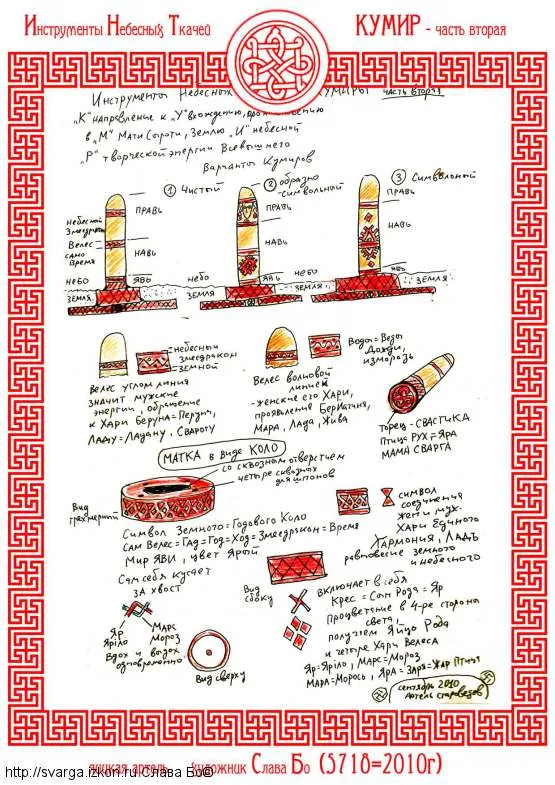 Инструменты Небесных Ткачей
КУМИР - часть вторая
Инструменты Небесных Кумиры часть вторая
„К" направление к „У" вхождению,
в „М" Мати Сырой, Землю „И" небесной
„Р" творческой энергии Всевышнего
Варианты Кумиров
① Чистый
② образно
-символьный
③ Символьный
ПРАВЬ
ПРАВЬ
ПРАВЬ
небесной
Велес
само
Время
НАВЬ
НАВЬ
НАВЬ
НЕБО
ЯВЬ
небо
ЯВЬ
небо
ЯВЬ
ЗЕМЛЯ
ЗЕМЛЯ
ЗЕМЛЯ
ЗЕМЛЯ
небесный
змеедракон
земной
Велес углом линия
значит мужские
энергии, обращение
к Хари Беруна=Перун,
Ладу=Ладану, Сварогу
Вода=Веды
Дожди,
изморозь
Велес волновой
линией
-женские его Хари,
проявления
Мара, Лада, Жива
торец-СВАСТИКА
птица РУХ=Яра
МАМА СВАРГА
МАТКА в виде КОЛО
со сквозным отверстием
четыре сквозных
для шпонов
Вид
трёхмерный
символ
соединения
жен и муж-
Хари Единого
Гармония, Ладъ
равновесие земного
и небесного
Символ Земного=Годового Коло
Сам Велес=Гад=Год=Ход=Змеедракон=Время
Мир ЯВИ, цвет Ярый
Сам себя кусает
за хвост
Вид
сбоку
включает в себя
Крес=Сын Рода=Яр
Процветание в 4-ре стороны
света,
получаем Яйцо Рода
и четыре Хари Велеса
Яр=Ярило, Марс=Мороз
Мара=Морось, Яра=Заря=Жар Птица
Яр
Ярило
Марс
Мороз
Вдох и выдох
одновременно
Вид сверху
сентябрь 2010
Артель староведов
http://svarga.izkon.ru/Слава Бо©
артель художник Слава Бо (5718=2010г)